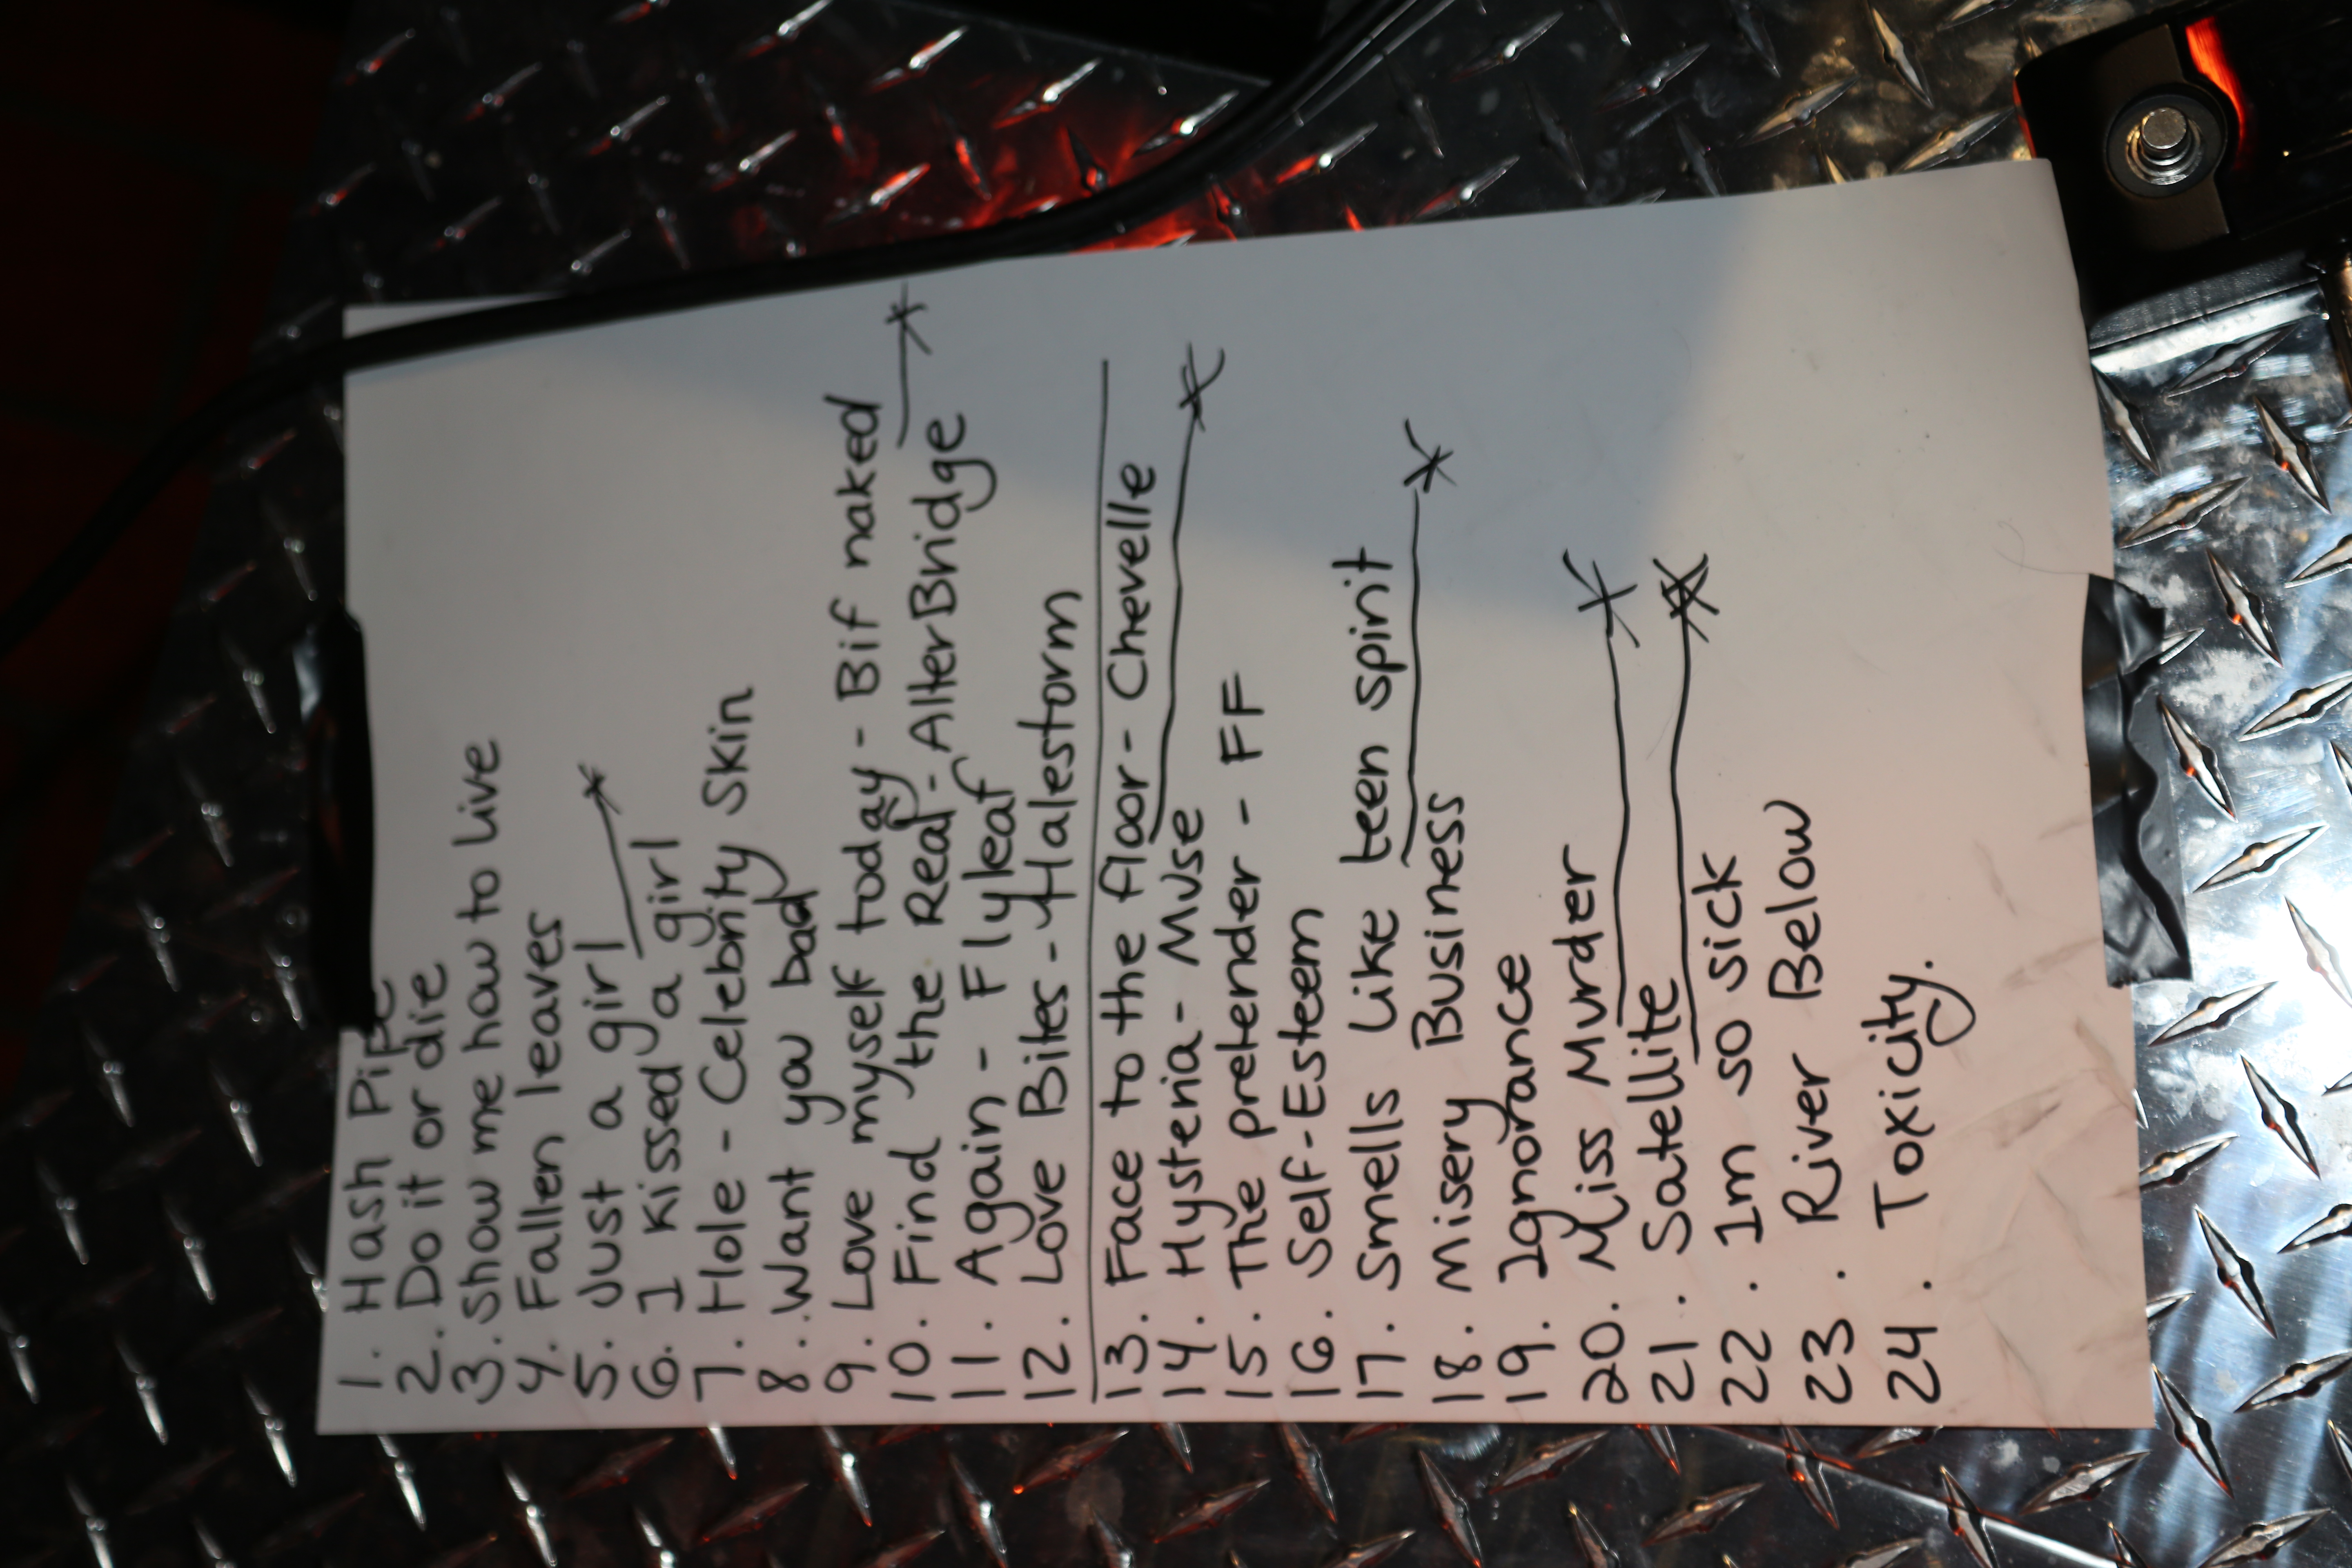 1. Hash Pipe
2. Do it or die
3. Show me how to Live
4. Fallen leaves
5. Just a girl
6. I kissed a girl
7. Hole - Celebrity Skin
8. Want you bad
9. Love myself today - Bif naked
10. Find the Real - AlterBridge
11. Again - Flyleaf
12. Love Bites - Halestorm
13. Face to the floor - Chevelle
14. Hysteria - Muse
15. The pretender - FF
16. Self-Esteem
17. Smells Like teen spirit
18. Misery Business
19. Ignorance
20. Miss Murder
21. Satellite
22. Im so sick
23. River Below
24. Toxicity.